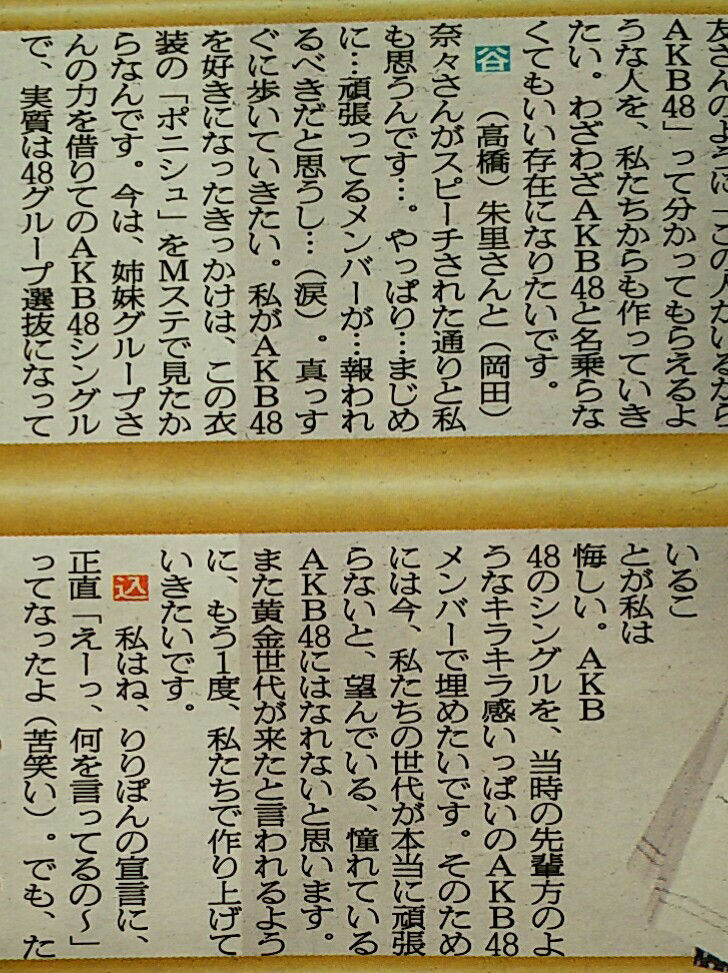 友さんのように「この人がいるから
AKB48」って分かってもらえるよ
うな人を、私たちからも作っていき
たい。わざわざAKB48と名乗らな
くてもいい存在になりたいです。
谷 (高橋)朱里さんと(岡田)
奈々さんがスピーチされた通りと私
も思うんです…。やっぱり…まじめ
に…頑張ってるメンバーが…報われ
るべきだと思うし…(涙)。真っす
ぐに歩いていきたい。私がAKB48
を好きになったきっかけは、この衣
装の「ポニシュ」をMステで見たか
らなんです。今は、姉妹グループさ
んの力を借りてのAKB48シングル
で、実質は48グループ選抜になって
いるこ
とが私は
悔しい。AKB
48のシングルを、当時の先輩方のよ
うなキラキラ感いっぱいのAKB48
メンバーで埋めたいです。そのため
には今、私たちの世代が本当に頑張
らないと、望んでいる、憧れている
AKB48にはなれないと思います。
また黄金世代が来たと言われるよう
に、もう1度、私たちで作り上げて
いきたいです。
込 私はね、りりぽんの宣言に、
正直「えーっ、何を言ってるの〜」
ってなったよ(苦笑い)。でも、た